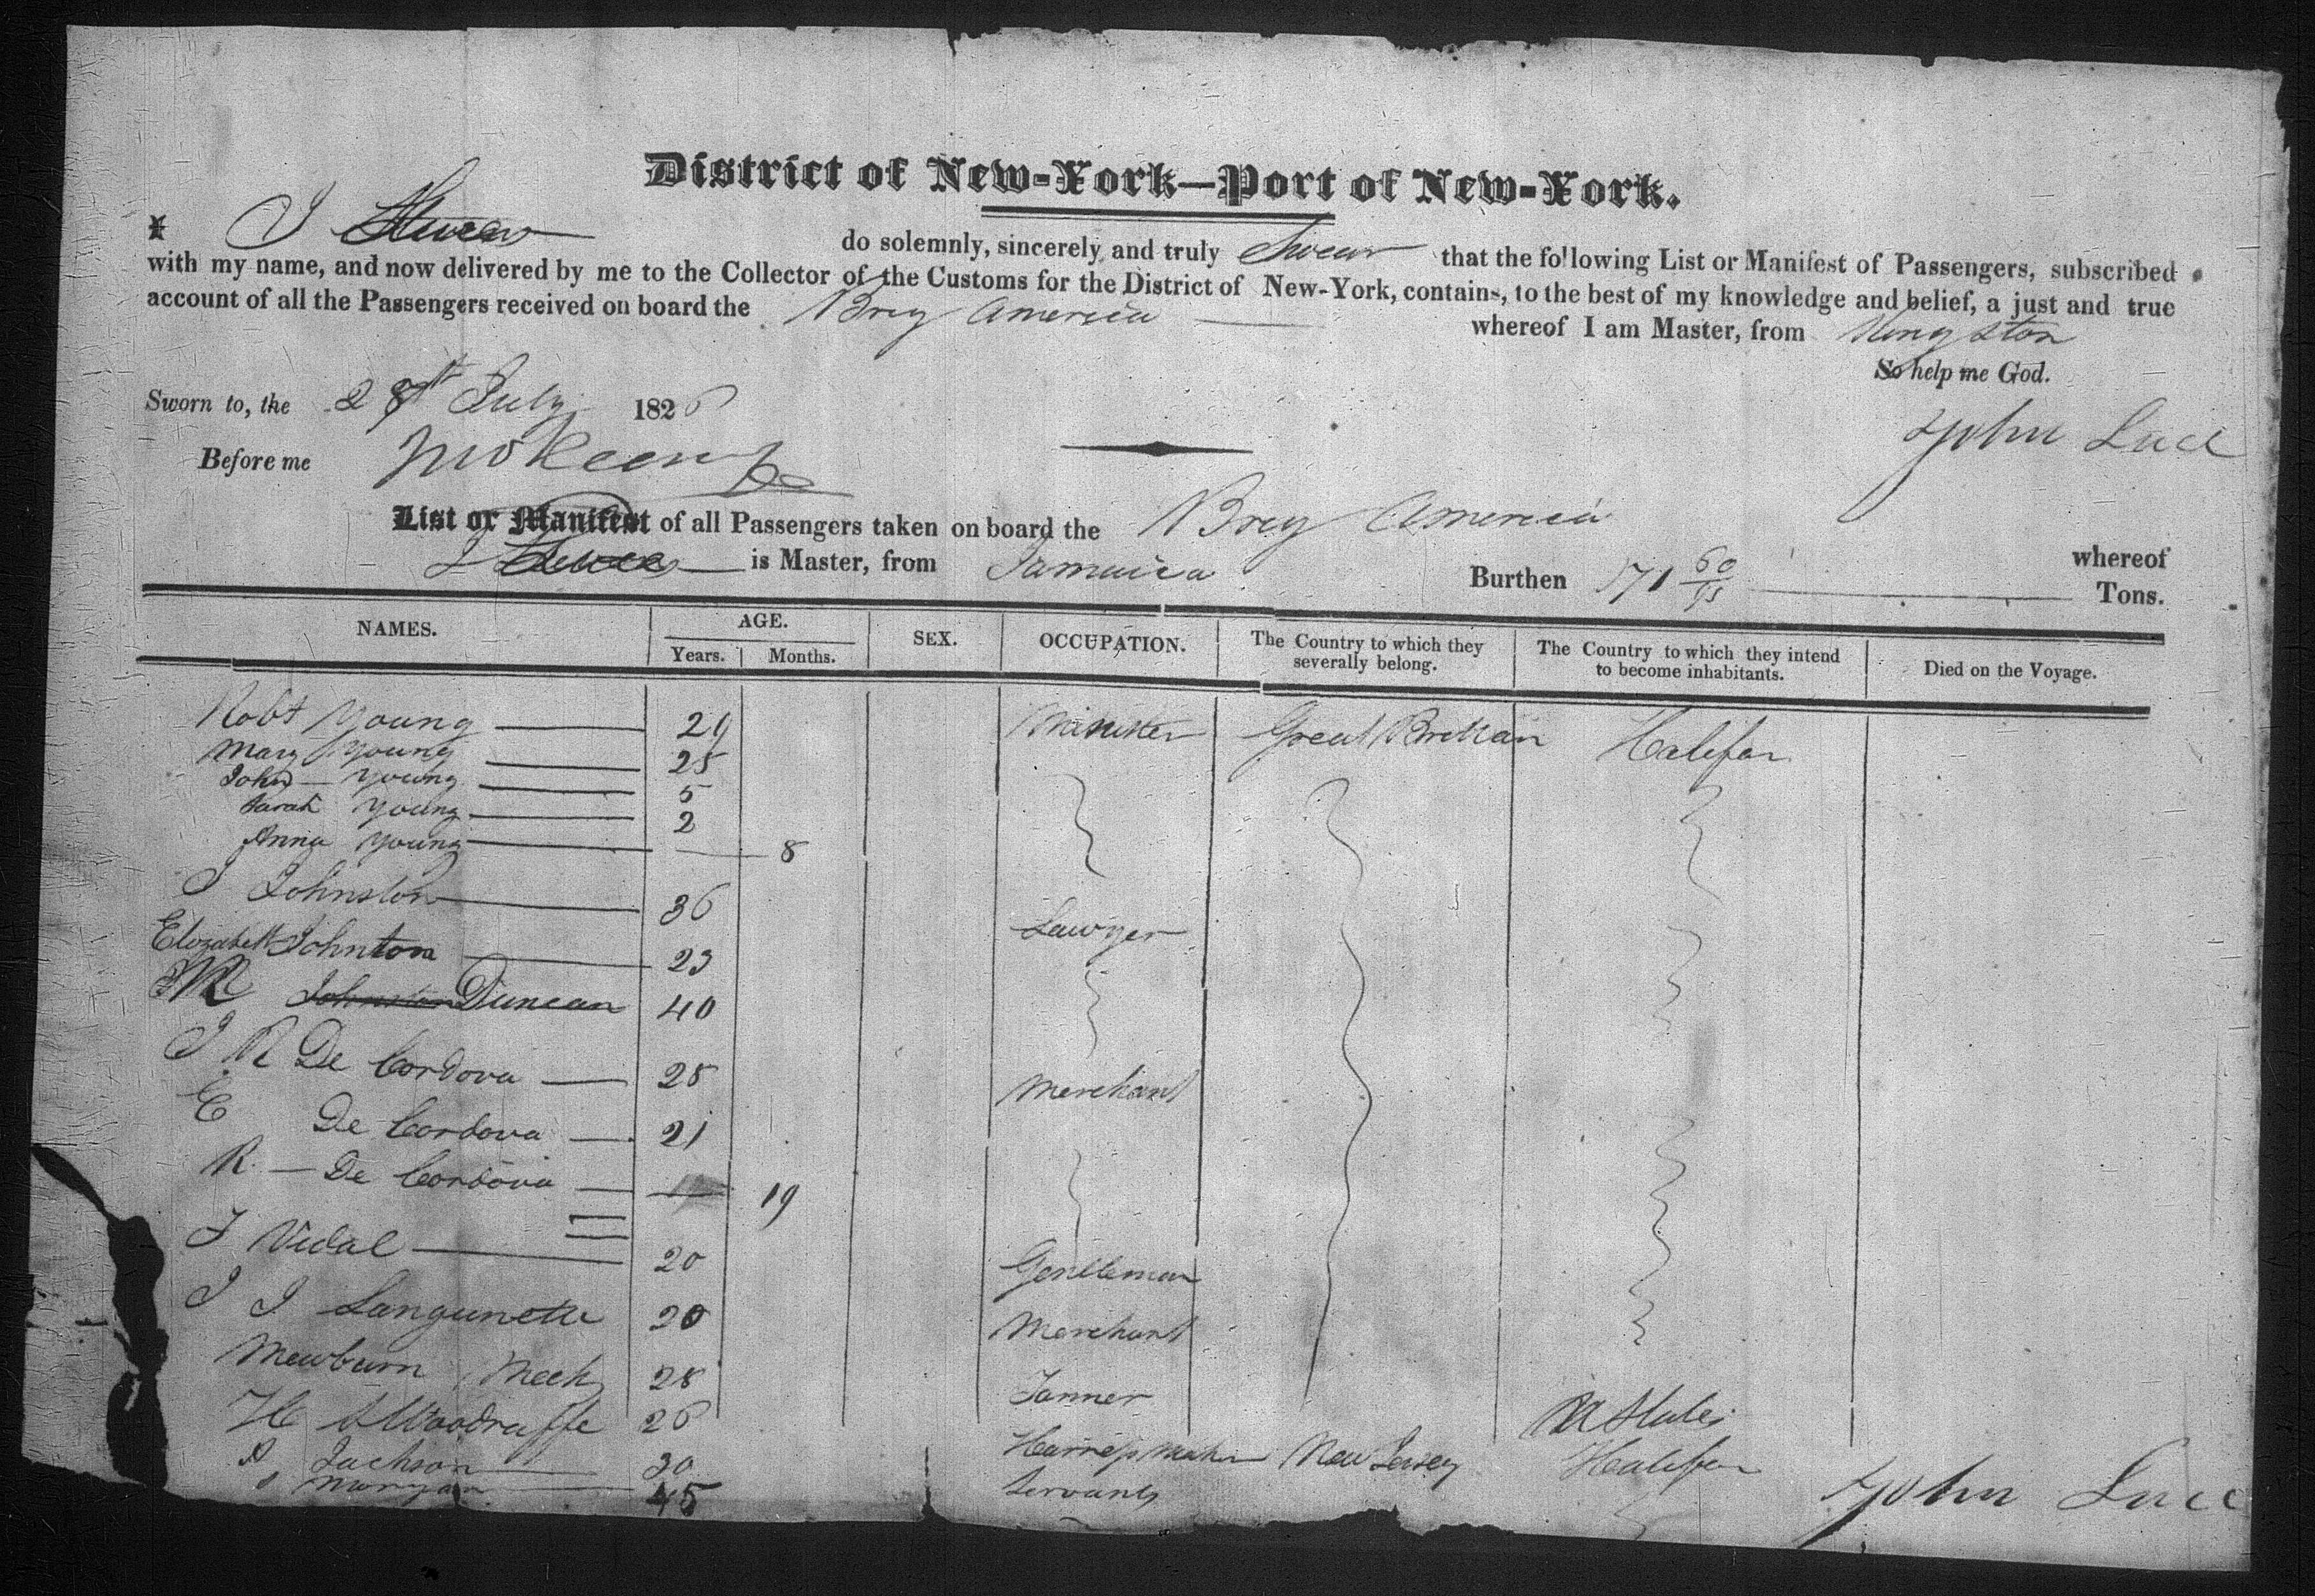 District of New-York—Port of New-York.
I do solemnly, sincerely, and truly Swear that the following List or Manifest of Passengers, subscribed
with my name, and now delivered by me to the Collector of the Customs for the District of New-York, contains, to the best of my knowledge and belief, a just and true
account of all the Passengers received on board the Brig America whereof I am Master, from Kingston
So help me God.
Sworn to, the 28th July 1826
John Luce
Before me
List or Manifest of all Passengers taken on board the Brig America whereof
is Master, from Jamaica Burthen 171 60/95 Tons.
NAMES. AGE. Years. Months. SEX. OCCUPATION. The Country to which they severally belong. The Country to which they intend to become inhabitants. Died on the Voyage.
Robt Young 29 Minister Great Brittain Halifax
Mary Young 25
John Young 5
Sarah Young 2
Anna Young 8
J Johnston 36 Lawyer
Elizabeth Johnton 23
Johnston Duncan 40
J R De Cordova 25 Merchant
E De Cordova 21
R. De Cordova 19
J Vidal 20 Gentleman
J J Langunette 20 Merchant
Mewburn Meek 28 Tanner
H A Woodruffe 26 Harness Maker New Jersey U States
Jackson 30 Servants Halifax
Morgan 45
John Luce